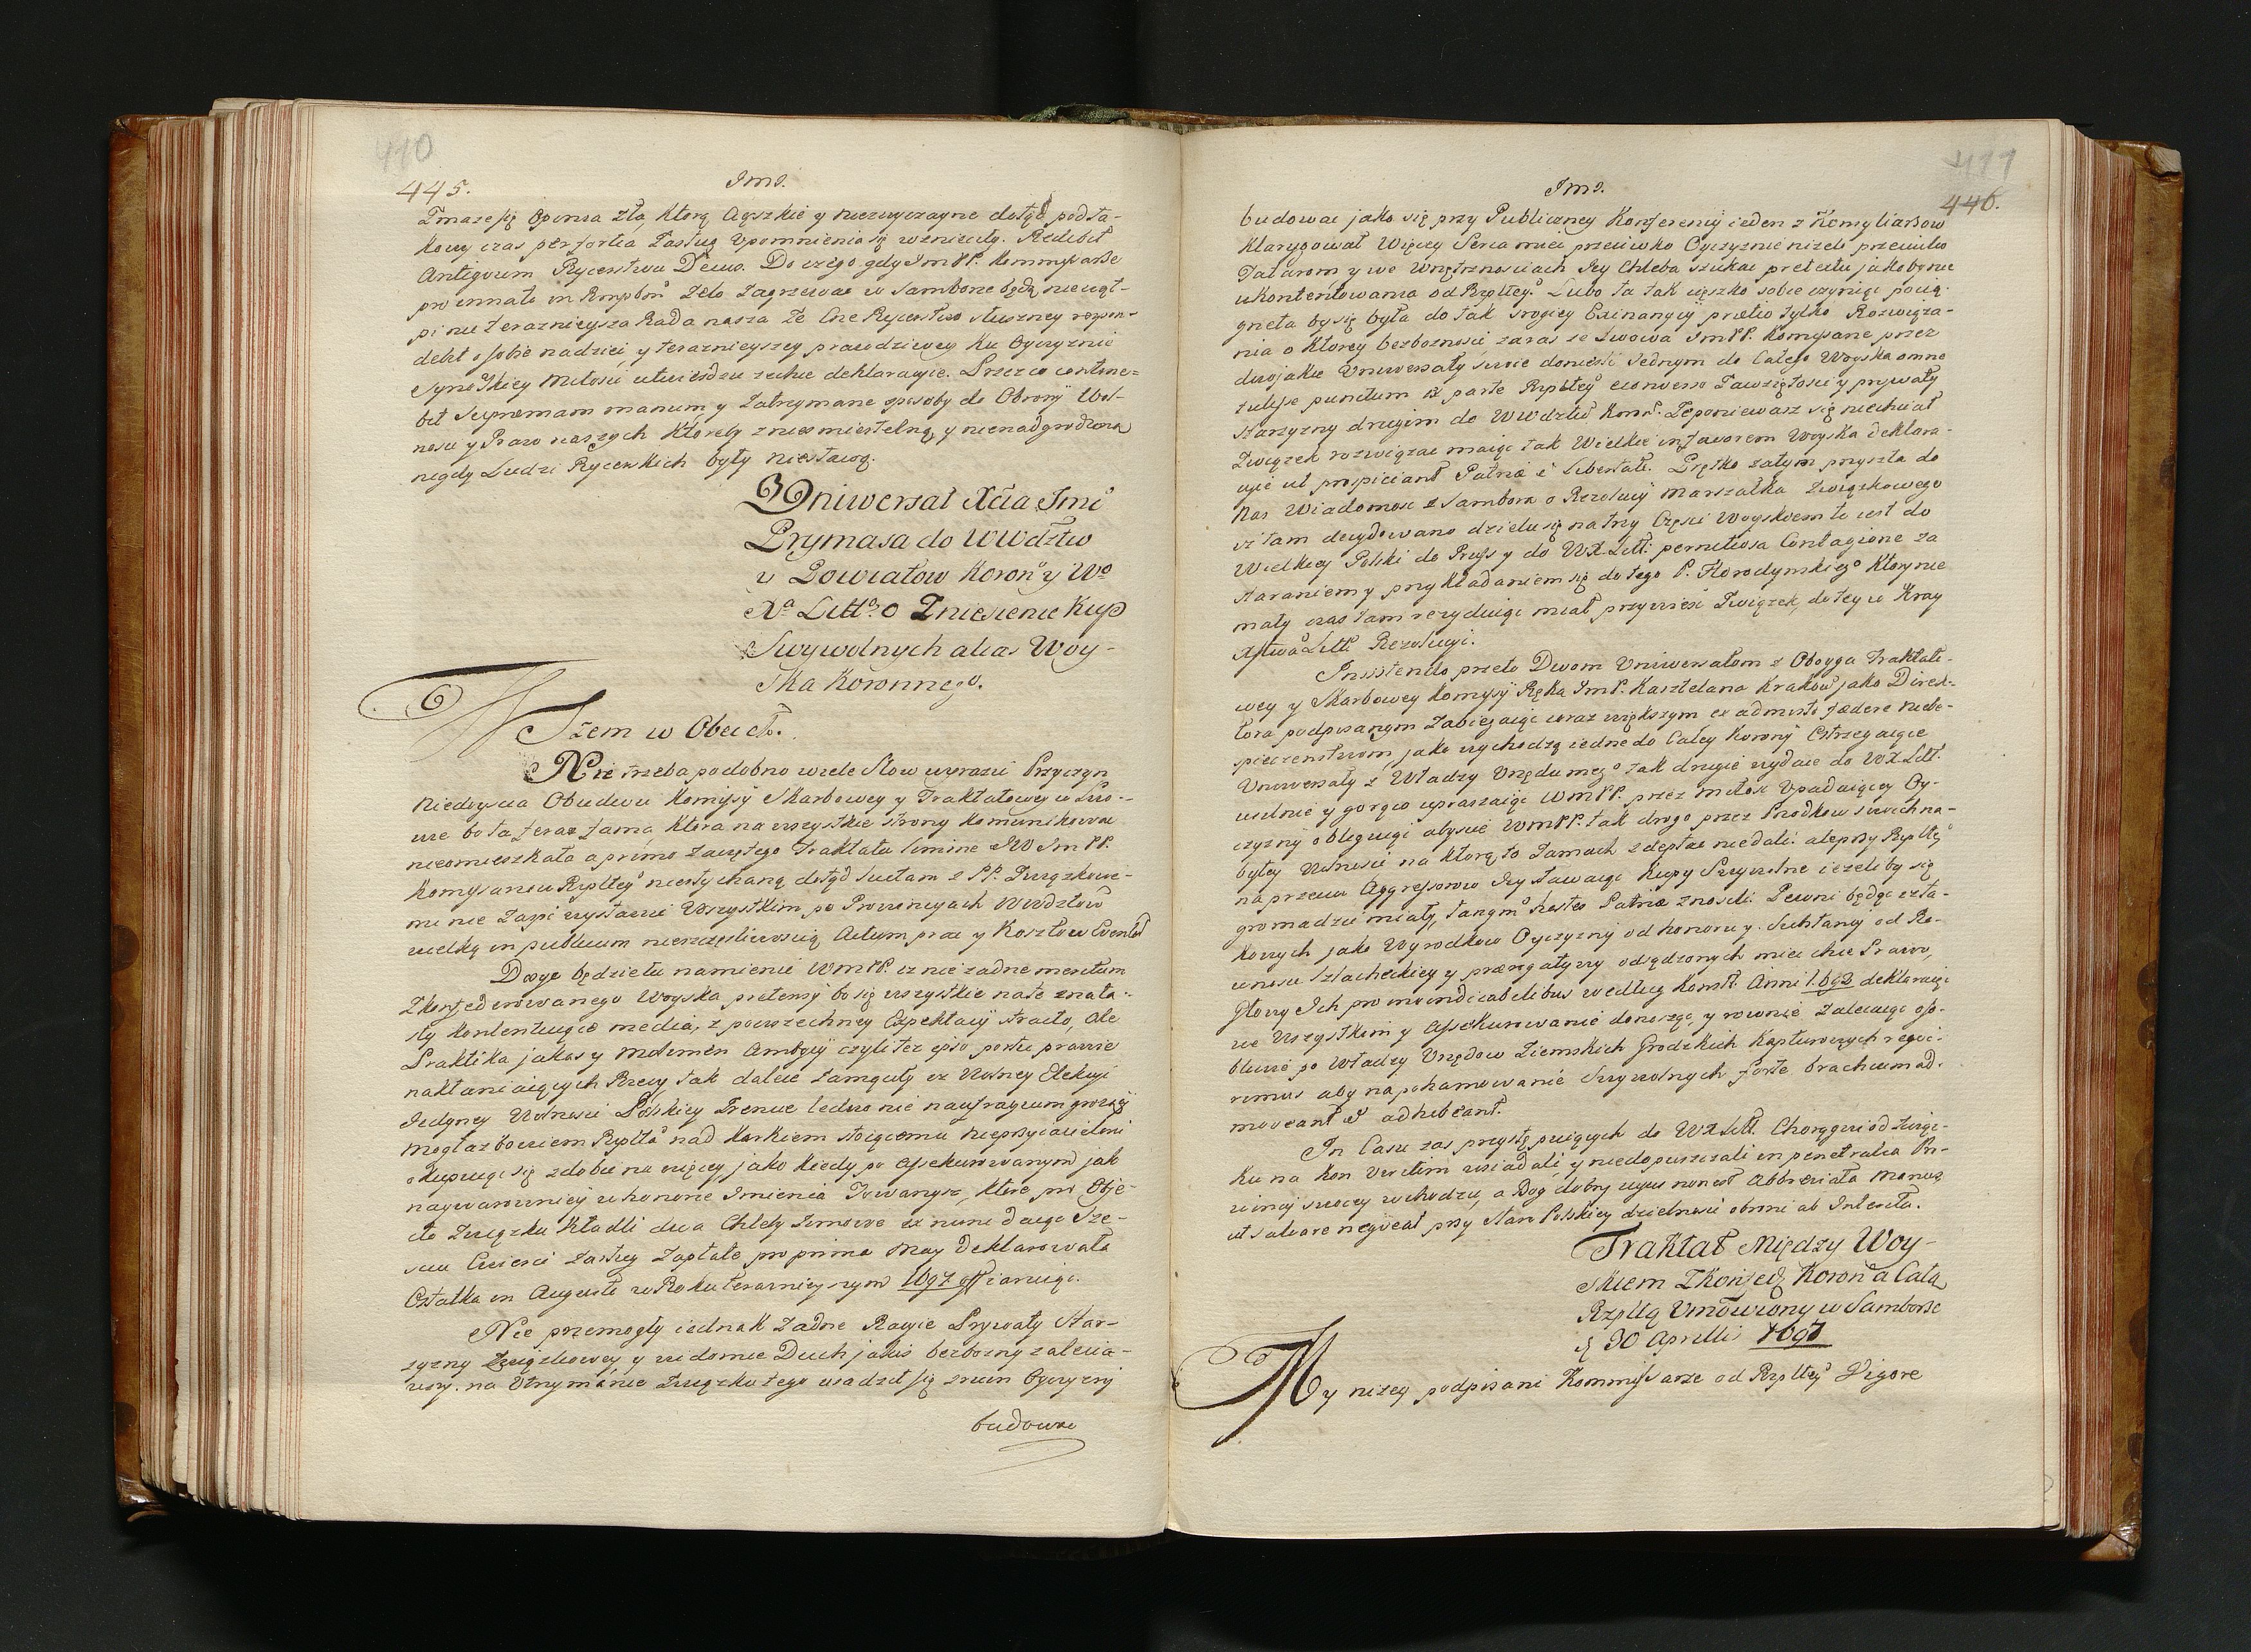 410
445.
Imo.
Tmaze się Opinia zła, którą Ciężkie y niezwyczayne dotąd podta-
kowy czas per fortia Zasług Vpomnienia się wznieciły. Redebit
Antiquum Rycerstwu Decus. Do czego gdy ImPP. Kommissarze
pro innato in Rempbm Zelo Zagrzewac w Samborze będą, niewąt-
pi nie terazniejsza Rada nasza że Cne Rycerstwo słuszney respon-
debit o sobie nadziei, y teraznieyszey prawdziwey ku Oyczyznie
Synowskiey Miłosci utwierdzi zechce deklaracyie. Przez co contine-
bit Supremam manum y Zatrzymane sposoby do Obrony Wol-
nosci y Praw naszych które by z niesmiertelną, y nienadgrodzoną
nigdy Ludzi Rycerskich były niesławą.
Vniwersał Xcia Jmci
Prymasa do WWdztw
y Powiatow Koron y Wo
Xa Litto o Zniesienie Kup
Swywolnych alias Woy-
ska Koronnego.
Wszem w Obec etc.
Nie trzeba podobno wiele słow wyrazić Przyczyn
Niedoyscia Obudwu Komisyi Skarbowey y Traktatowey w Lwo-
wie bo ta teraz fama, ktora na wszystkie strony komunikować
nieomieszkała a primo zaczętego Traktatu limine JW ImPP.
Komysarzow Rzpltey niesłychaną dotąd Suctam z PP. Związkowe-
mi nie Zapi wystawic Wszystkim po Prowincyach Wwdztwo
wielką in publicum nieszczęśliwością Actum prac y Kosztow Eventus
Dosyc będzie tu namienic WmPP. iz nie zadne meritum
Zkonfederowanego Woyska pretensyi bo się wszystkie na te znala-
zły kontentuiące media, z powszechney Expektacyi tracto, Ale
Praktika jakas y molimen Ambycyi czyli tez ipso portu prawie
nakłaniaiących Rzeczy tak dalece Zamąciły ex Wolney Elekcyi
Jedyney Wolnosci Polskiey Zrenice ledwo nie naufragium grozący
Mogłaz bowiem Rzplta nad karkiem stoiącemu Nieprzyiacielowi
okupuiąc się zdobic na więcey jako kiedy po assekurowanym jak
naywarowniey w honorze Imienia Towarzysz, ktore pro Obje-
cto Związku kładli dwa Chleby Zimowe ex nunc daiąc Sze-
sciu Cwierci zasług Zapłate pro prima May deklarowała
Ostatka in Augusto w Roku teraznieyszym 1697 offiaruiąc.
Nie przemogły iednak Zadne Racyie Prywaty Star-
szyzny Związkowey, y widomie Duch jakis bezbozny zalecia-
wszy. na Vtrzymanie Związku tego usadził się z ruin Oyczyzny
budować
411
446.
Imo.
budowac jako się przy Publiczney Konferencyi ieden z Konsyliarzow
klarygował Więcey Serca mieć przeciwko Oyczyznie nizeli przeciwko
Tatarom y we Wnętrznosciach Jey Chleba szukac pretextu jakoby nie
ukontentowania od Rzpltey. Lubo ta tak cięszko sobie czyniąc pocią-
gneła by się była do tak srogiey Exinanicyi pretio tylko Rozwiąza-
nia o ktorey bezboznosci zaraz ze Lwowa ImPP. Komysarze przez
dwojakie Vniwersały swoie donieśli Jednym do Całego Woyska omne
tulisse punctum ex parte Rzpltey econverso Zawziętosci y prywaty
starszyzny drugim do WWdztw Koron. Ze poniewasz się niechciał
Związek rozwiązac maiąc tak Wielkie in favorem Woyska deklara-
cyie ut prospiciant Patriæ et Libertati. Prętko zatym przyszła do
Nas Wiadomosc z Sambora o Rezolucyi Marszałka Związkowego
iz tam decydowano dzielic się na trzy Części Woyskiem to iest do
Wielkiey Polski do Pruss y do WX. Litt: perniciosa Contagione za
staraniem y przykładaniem się do tego P. Horodynskiego ktory nie
mały czas tam rezyduiąc miał przywiesć Związek do tey w Kray
Xstwa Litt Rezolucyi.
Insistendo przeto Dwom Vniwersałom z Oboyga Traktato-
wey y Skarbowey Komysyi Ręką ImP. Kasztelana Krakow jako Direk-
tora podpisanym Zabiegaiąc coraz większym ex admisto fœdere niebe-
spieczenstwom jako wychodzą iedne do Całey Korony Ostrzegaiące
Vniwersały z Władzy Vrzędu mego tak drugie wydaie do WX. Litt.
usilnie y gorąco upraszaiąc WmPP. przez miłosc Vpadaiącey Oy-
czyzny obliguiąc abyscie WmPP. tak drogo przez Przodkow swoich na-
bytey Wolnosci na ktorą to Zamach zdeptac niedali: ale przy Rzpltey
na przeciw Aggressorow Jey stawaiąc Kupy Swywolne iezeliby się
gromadzic miały, tanqm hostes Patriæ znosili. Pewni będąc iż ta-
kowych jako Wyrodkow Oyczyzny od honoru y Substancyi od Ro-
wnosci szlacheckiey y prerogatywy odsądzonych miec chce Prawo,
Głowy Ich pro invindicabilibus według Konst: Anni 1693 deklaracyi
we Wszystkim y Assekurowanie donoszę, y rownie Zalecaiąc oso-
bliwie po Władzy Vrzędow Ziemskich Grodzkich Kapturowych requi-
rimus aby na pohamowanie Swywolnych forte brachium ad-
moveant et adhibeant.
In Casu zas przystępuiących do WX Litt. Chorągwi od Związ-
ku na kon viritim wsiadali, y niedopuszczali in penetralia Pro-
wincyi swoiey wchodzic, a Bog dobry cuyus non est Abbreviata Manus
ut salvare nequeat przy staro Polskiey dzielnosci obroni ab Interitu.
Traktat Między Woy-
skiem Zkonfed. Koron a Całą
Rzpltą Vmowiony w Samborze
d. 30 Aprilli 1697
My nizey podpisani Kommissarze od Rzpltey Vigore